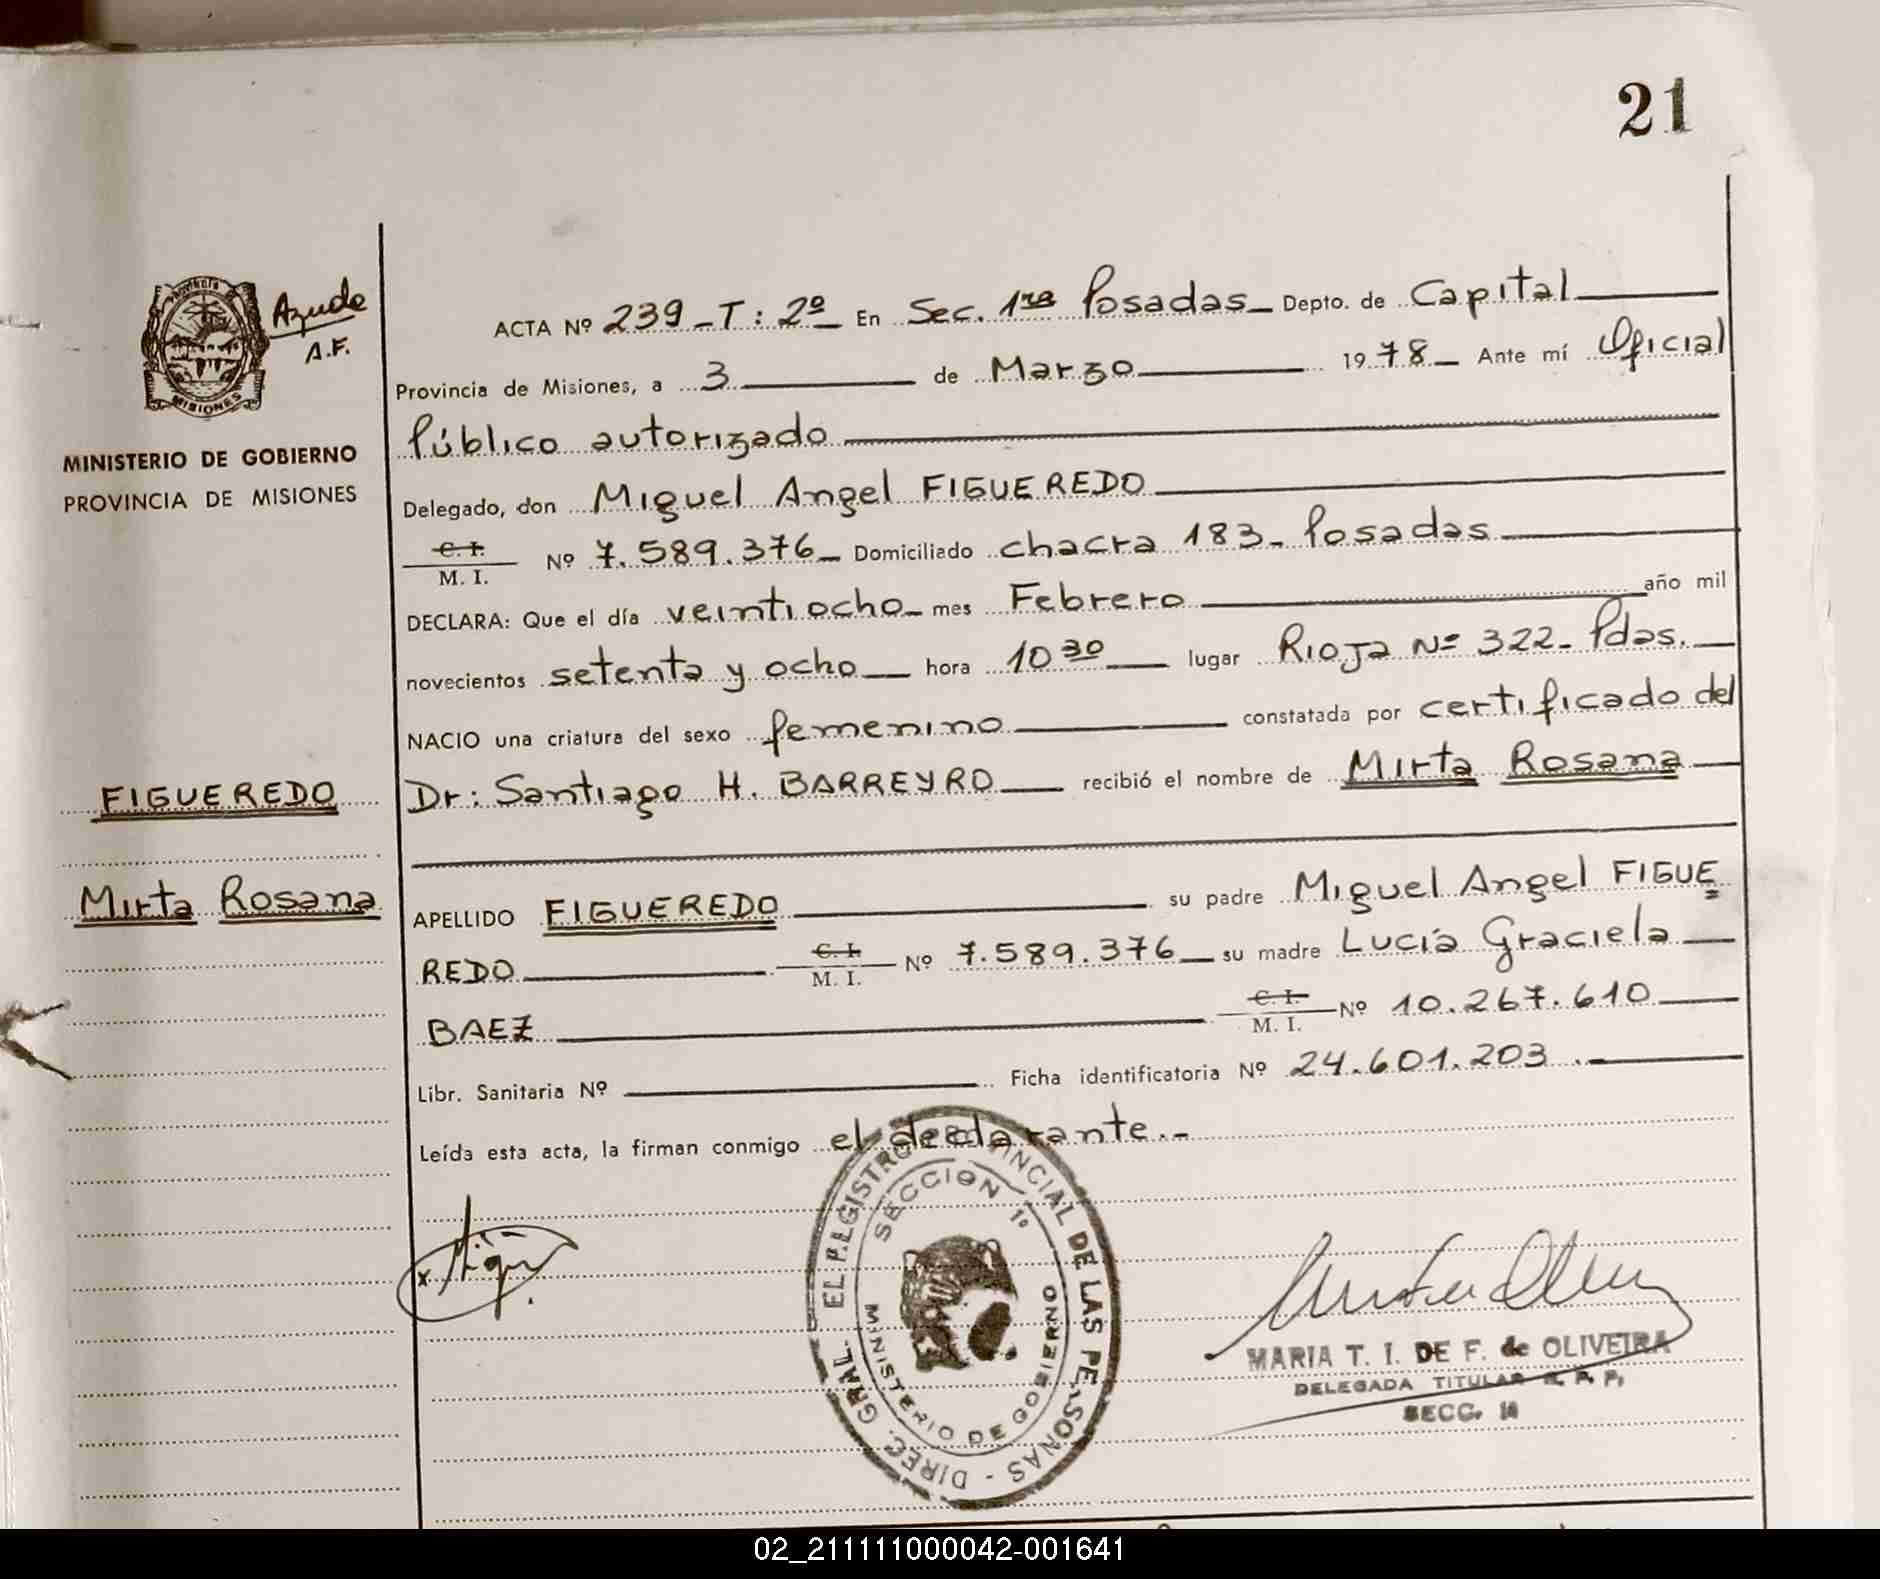 21
Ayude
A.F.
MISIONES
MINISTERIO DE GOBIERNO
PROVINCIA DE MISIONES
FIGUEREDO
Mirta Rosana
ACTA Nº 239_T: 2º_ En Sec. 1ra Posadas_ Depto. de Capital
Provincia de Misiones, a 3 de Marzo 1978_ Ante mí Oficial
Público autorizado
Delegado, don Miguel Angel FIGUEREDO
C. I. / M. I. Nº 7.589.376_ Domiciliado chacra 183_ Posadas
DECLARA: Que el día veintiocho_ mes Febrero año mil
novecientos setenta y ocho hora 10 30 lugar Rioja Nº 322_ Pdas.
NACIO una criatura del sexo femenino constatada por certificado del
Dr: Santiago H. BARREYRO recibió el nombre de Mirta Rosana
APELLIDO FIGUEREDO su padre Miguel Angel FIGUE=
REDO C. I. / M. I. Nº 7.589.376 su madre Lucía Graciela
BAEZ C. I. / M. I. Nº 10.267.610
Libr. Sanitaria Nº Ficha identificatoria Nº 24.601.203.
Leída esta acta, la firman conmigo el declarante.-
DIREC. GRAL. DE LAS PERSONAS
SECCION 1º
MINISTERIO DE GOBIERNO
MARIA T. I. DE F. de OLIVEIRA
DELEGADA TITULAR R. P. P.
SECC. 1ª
02_211111000042-001641